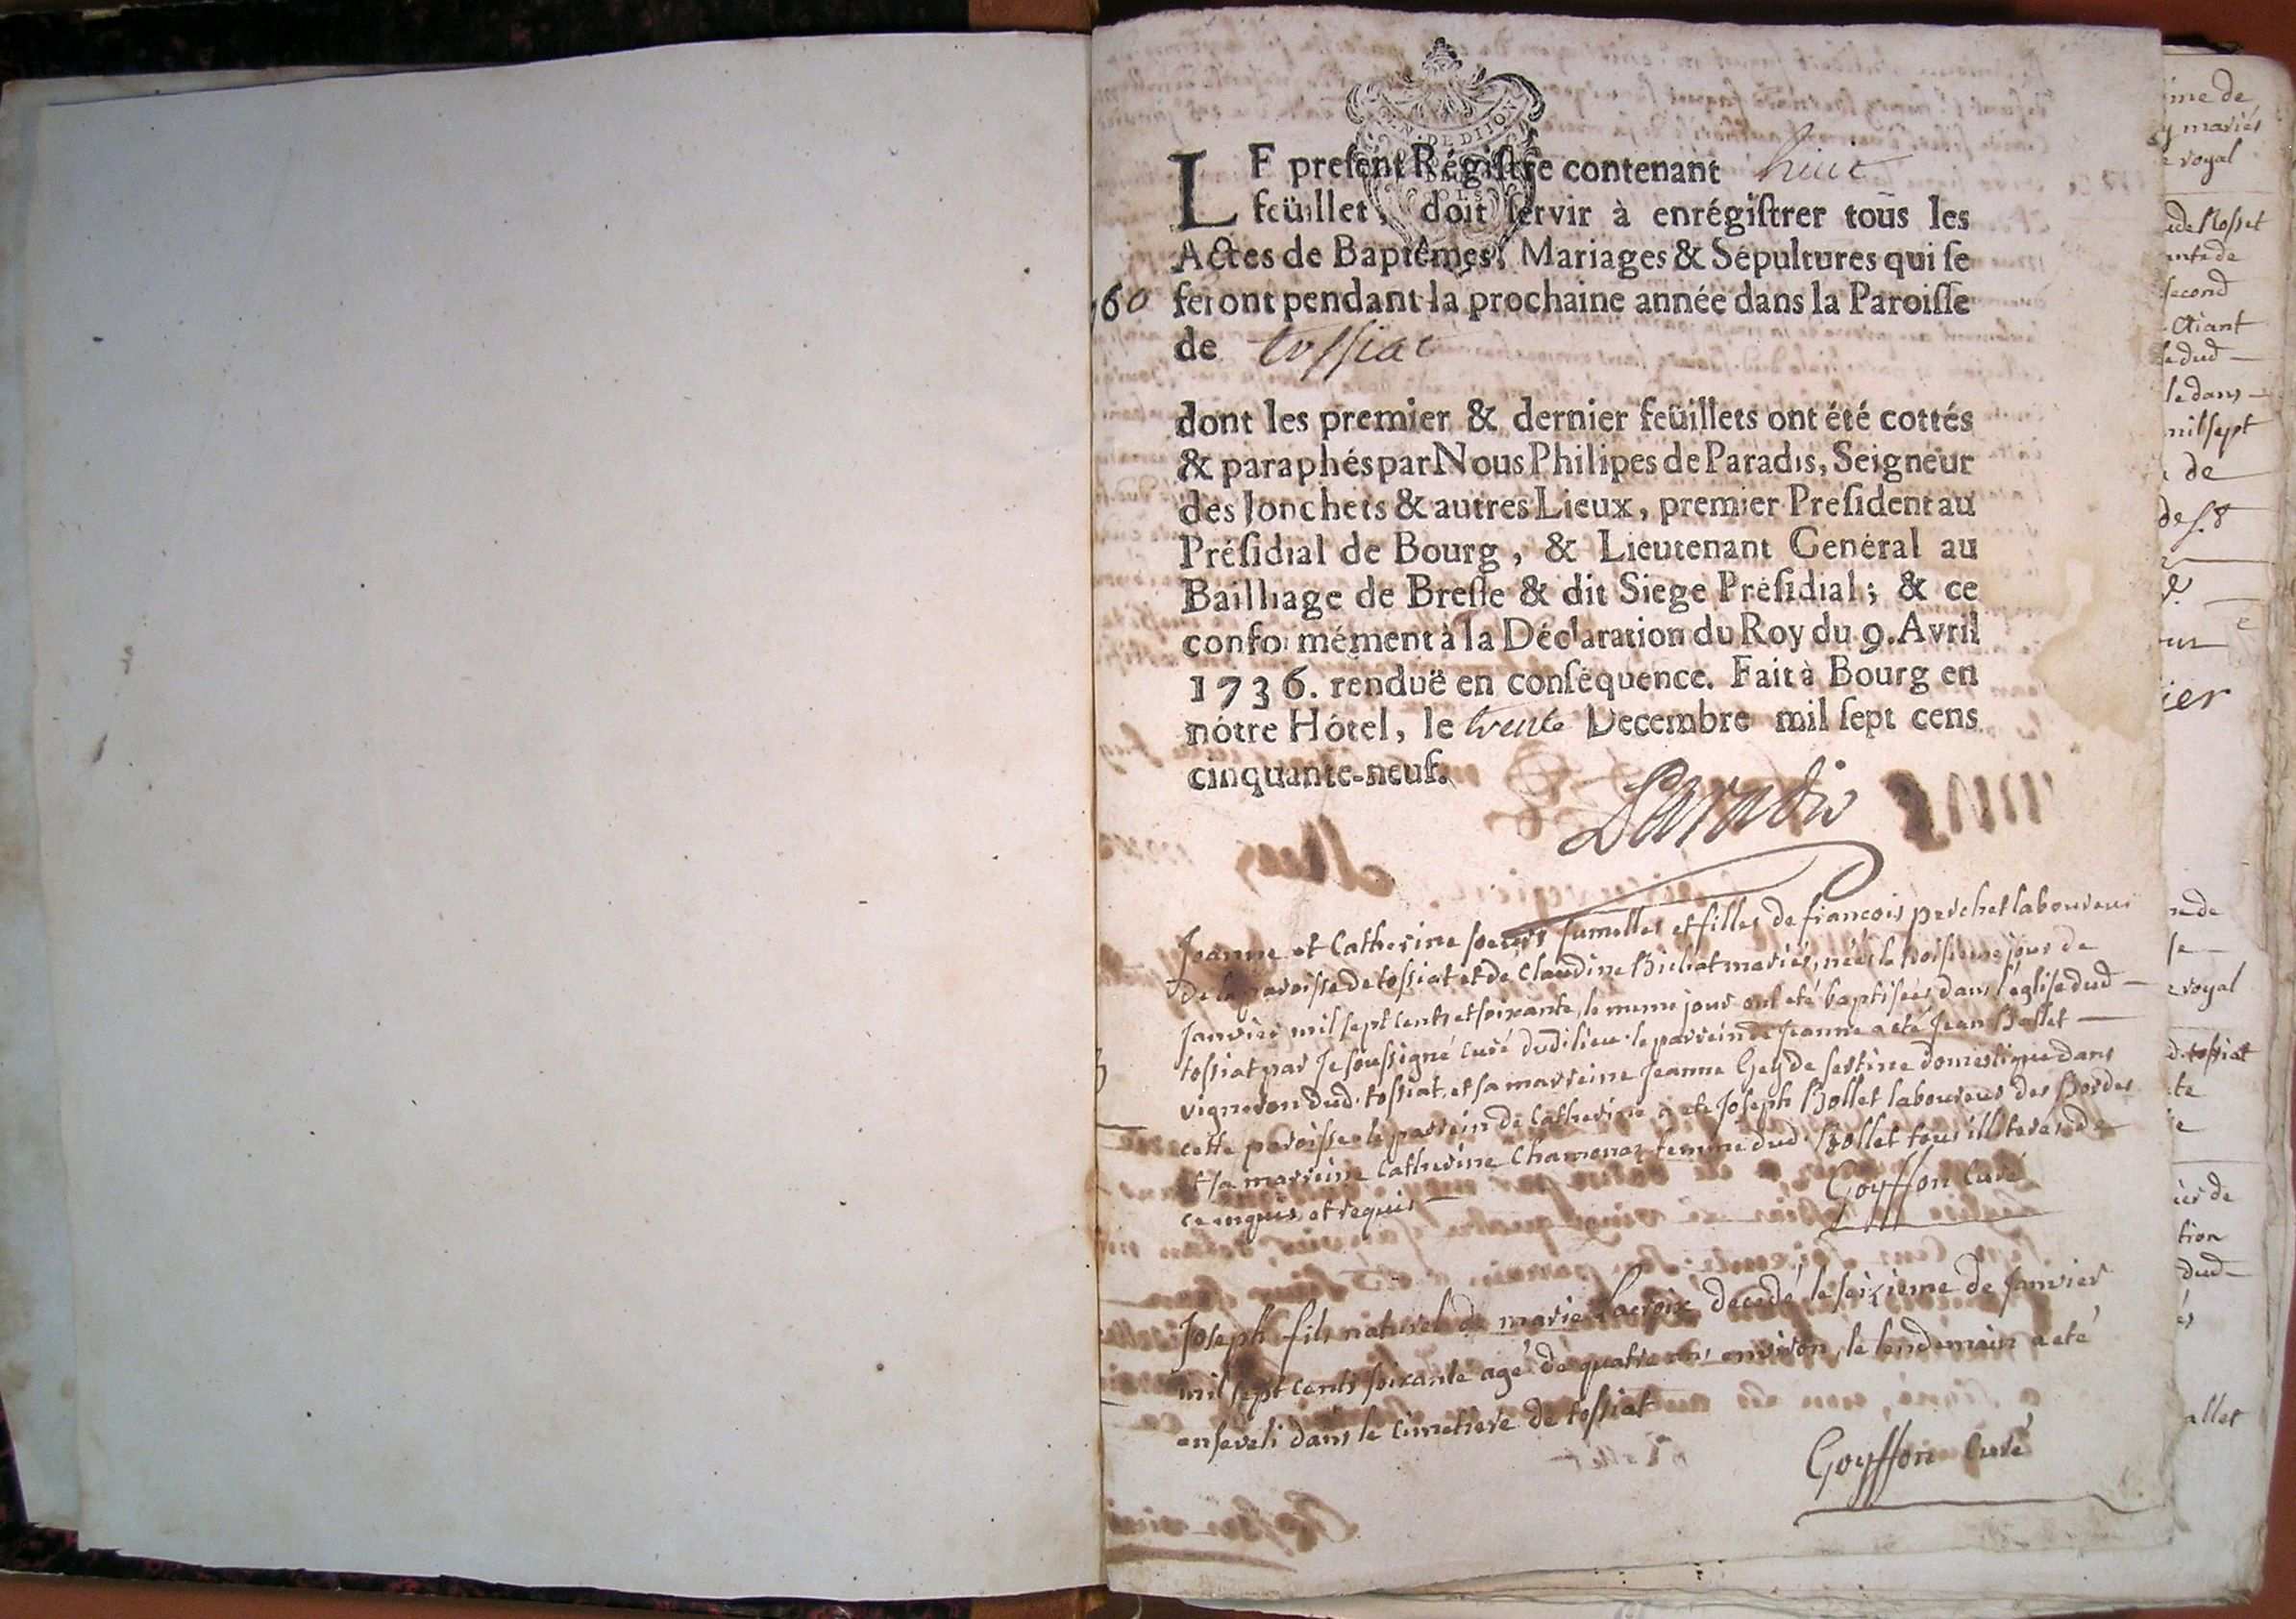 N. DE DIJON
LE present Régistre contenant huit
feüillet, doit servir à enrégistrer tous les
Actes de Baptêmes, Mariages & Sépultures qui se
60 feront pendant la prochaine année dans la Paroisse
de tossiat
dont les premier & dernier feüillets ont été cottés
& paraphés par Nous Philipes de Paradis, Seigneur
des Jonchets & autres Lieux, premier President au
Présidial de Bourg, & Lieutenant Genéral au
Bailliage de Bresse & dit Siege Présidial; & ce
conformément à la Déclaration du Roy du 9. Avril
1736. renduë en conséquence. Fait à Bourg en
nótre Hótel, le trente Decembre mil sept cens
cinquante-neuf.
Paradis
Jeanne et Catherine soeurs jumelles et filles de francois perchet laboureur
de la paroisse de tossiat et de Claudine Bichat mariés, nées le troisieme jour de
Janvier mil sept cents et soixante, le meme jour ont eté baptisées dans l'eglise dud
tossiat par Je soussigné curé dud. lieu. le parrein de Jeanne a eté Jean Ballet
vigneron dud. tossiat, et sa marreine Jeanne Gey de domestique dans
cette paroisse. le parrein de Catherine a eté Joseph Bollet laboureur des Bordes
et sa marreine Catherine Chamonaz femme dud. Bollet tous illiteres de
ce enquis et requis
Goyffon Curé
Joseph fils naturel de marie Lacroix decedé le seizieme de Janvier
mil sept cents soixante agé de quatre ans environ, le lendemain a eté
enseveli dans le cimetiere de tossiat
Goyffon Curé
de
mariés
royal
second
Etiant
dud
le dans
mil sept
de
royal
tossiat
te
de
tion
dud
allet